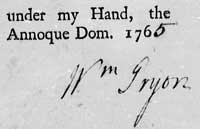 under my Hand, the
Annoque Dom. 1765
Wm Tryon